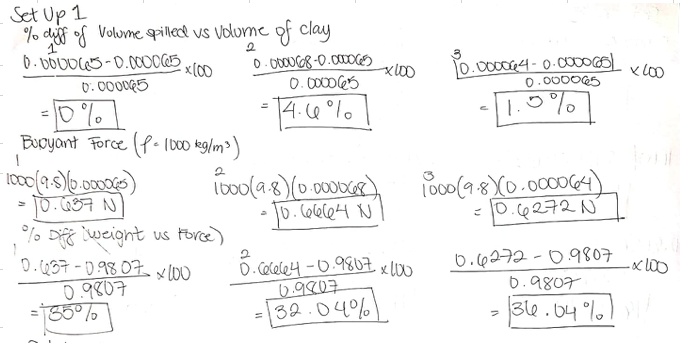 Set Up 1
% diff of Volume spilled vs volume of clay
1
0.000065-0.000065 ×100
0.000065
= 0%
2
0.000068-0.000065 ×100
0.000065
= 4.6%
3
|0.000064-0.000065| ×100
0.000065
= 1.5%
Buoyant Force (ρ=1000 kg/m³)
1
1000(9.8)(0.000065)
= 0.637 N
2
1000(9.8)(0.000068)
= 0.6664 N
3
1000(9.8)(0.000064)
= 0.6272 N
% Diff (weight vs Force)
1
0.637-0.9807 ×100
0.9807
= 35%
2
0.6664-0.9807 ×100
0.9807
= 32.04%
0.6272-0.9807 ×100
0.9807
= 36.04%